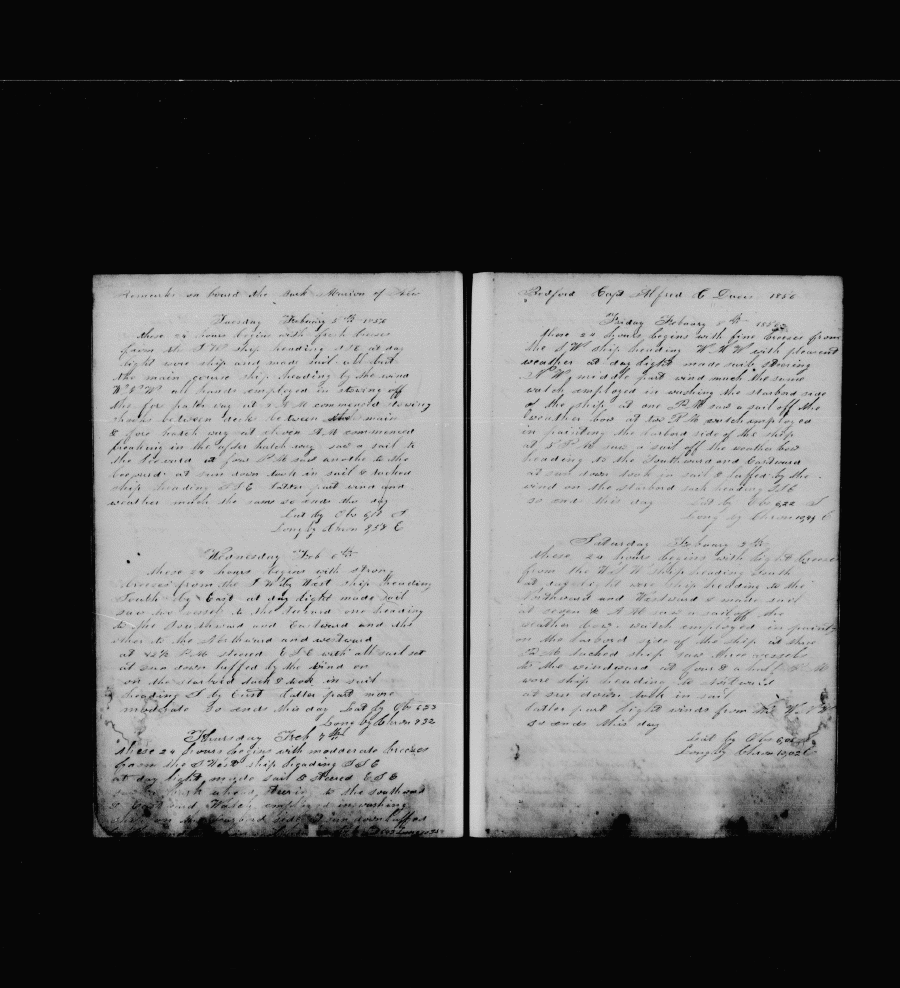 Remarks on board the Bark Marion of New
Tuesday Febuary 5th 1856
these 24 hours begins with fresh breeses
from the S W ship heading S S E at day
light wore ship and made sail all but
the main course ship heading by the wind
W N W all hands employed in stowing off
the fore
shooks between deck between the main
& fore hatch way at eleven A M commenced
breaking in the after hatch way saw a sail to
the Leeward at four P M saw anothe to the
leeward at sun down took in sail & tacked
ship heading S S E latter part wind and
weather much the same so ends the day
Lat by Obs S
Long by Chron 8,58 E
Wednesday Feb 6th
these 24 hours begins with strong
breeses from the S W by West ship heading
South by East at day light made sail
saw two vessels to the Leeward one heading
to the Southward and Eastward and the
other to the Northward and westward
at P M steered E S E with all sail set
at sun down luffed by the wind on
on the starbord tack & took in sail
heading S by East latter part more
moderate So ends this day Lat by Obs
Long by Chron 9 32
Thursday Feb 7th
these 24 hours begins with modderate breeses
from the S West ship heading S S E
at day light made sail & steered E S E
ahead steering to the southward
& East and Watch employed in washing
ship on the starbord side at sun down luffed
Bedford Capt Alfred C Davis 1856
Friday Febuary 8th 1856
these 24 hours begins with fine breeses from
the S W ship heading W N W with pleasent
weather at day light made sail steering
N W middle part wind much the same
watch employed in washing the starbord side
of the ship at one P M saw a sail off the
weather bow at two P M watch employed
in painting the larbord side of the ship
at 5 P M saw a sail off the weather bow
heading to the Southward and Eastward
at sun down took in sail & luffed by the
wind on the starbord tack heading S S E
so ends this day Lat by Obs 6,22 S
Long by Chron 10,49 E
Saturday Febuary 9th
these 24 hours begins with light breeses
from the W S W ship heading South
at day light wore ship heading to the
Northward and Westward & made sail
at seven A M saw a sail off the
weather bow watch employed in painting
on the larbord side of the ship at three
P M tacked ship saw three vessels
to the windward at four & a half P M
wore ship heading to Nortward
at sun down took in sail
latter part light winds from the
so ends this day
Lat by Obs
Long by Chron 10,02 E